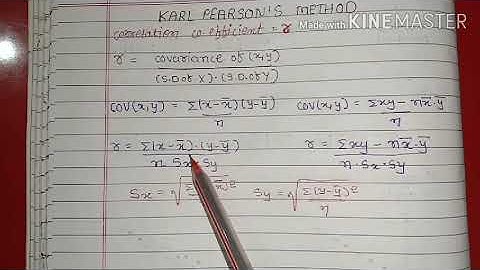 KARL PEARSON'S METHOD
Made with KINEMASTER
correlation co-efficient = r
r = covariance of (x,y) / (S.D of X) · (S.D of Y)
COV(x,y) = Σ(x-x̄)(y-ȳ) / n    COV(x,y) = Σxy - nx̄·ȳ / n
r = Σ(x-x̄)·(y-ȳ) / n Sx·Sy    r = Σxy - nx̄·ȳ / n·Sx·Sy
Sx = √Σ x̄)²    Sy = √Σ(y-ȳ)² / n